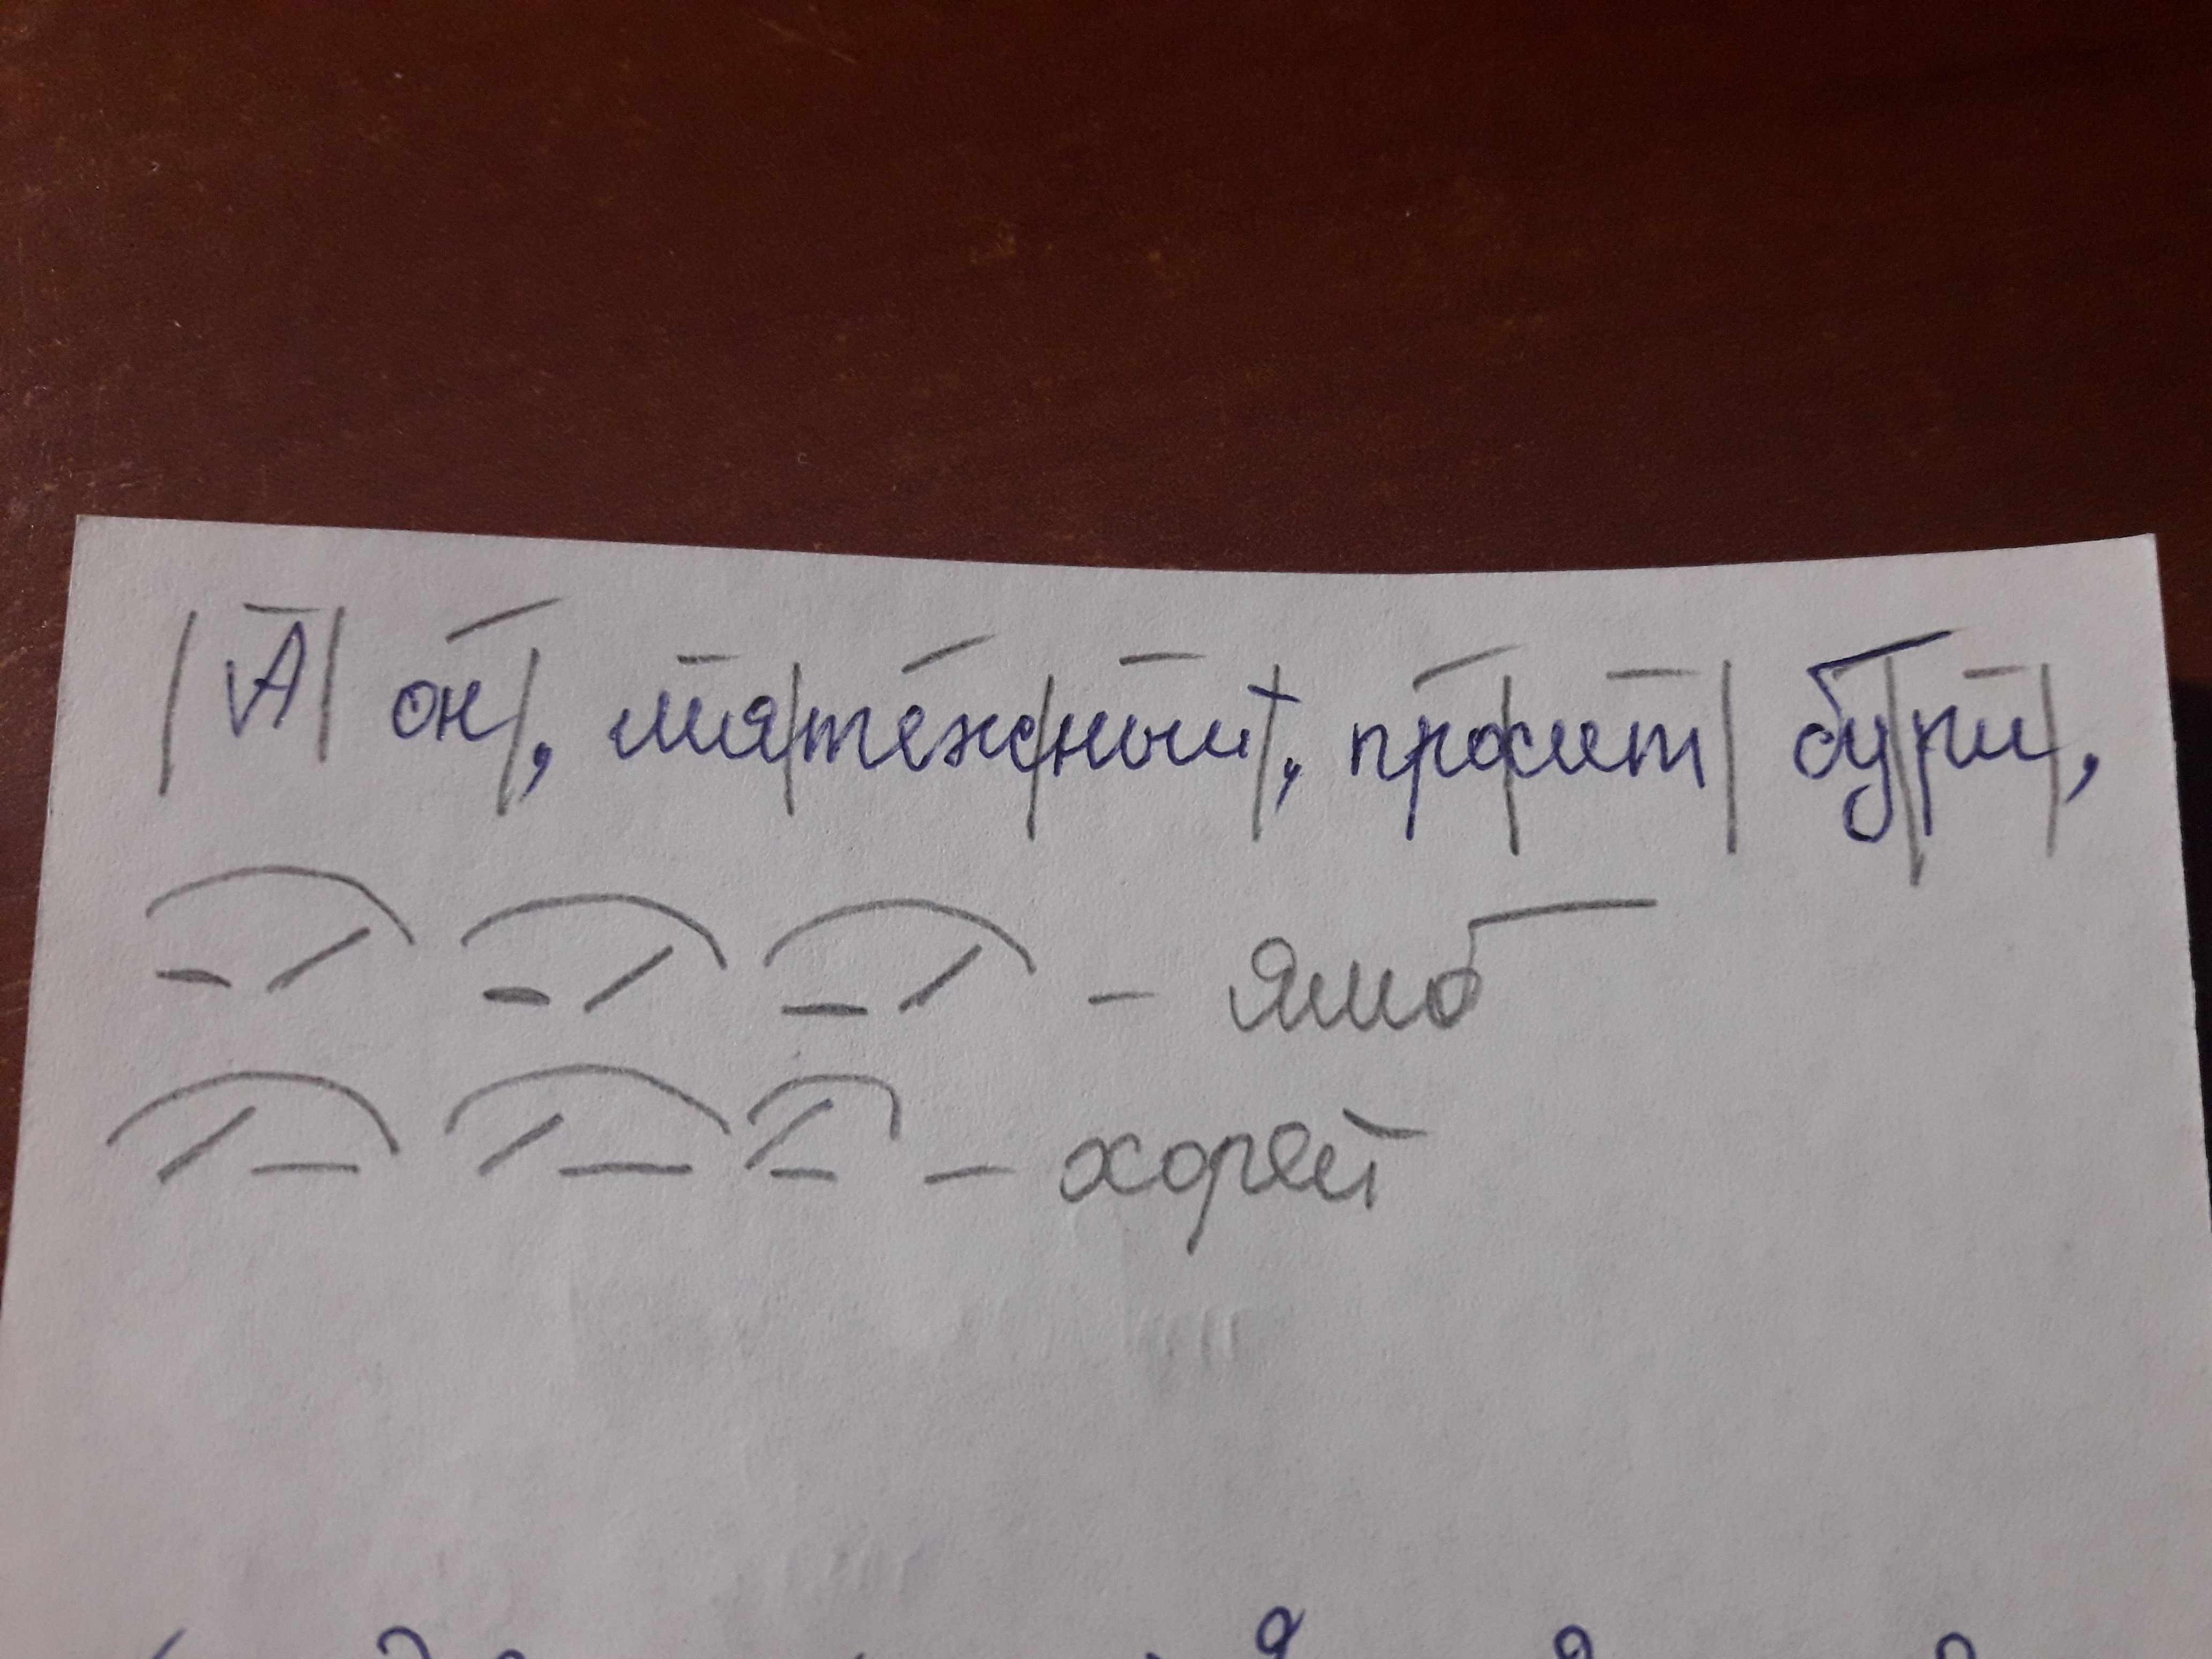 |А| он|, мя|теж|ный|, про|сит| бу|ри|,
– / – / – / – ямб
/ – / – / – – хорей